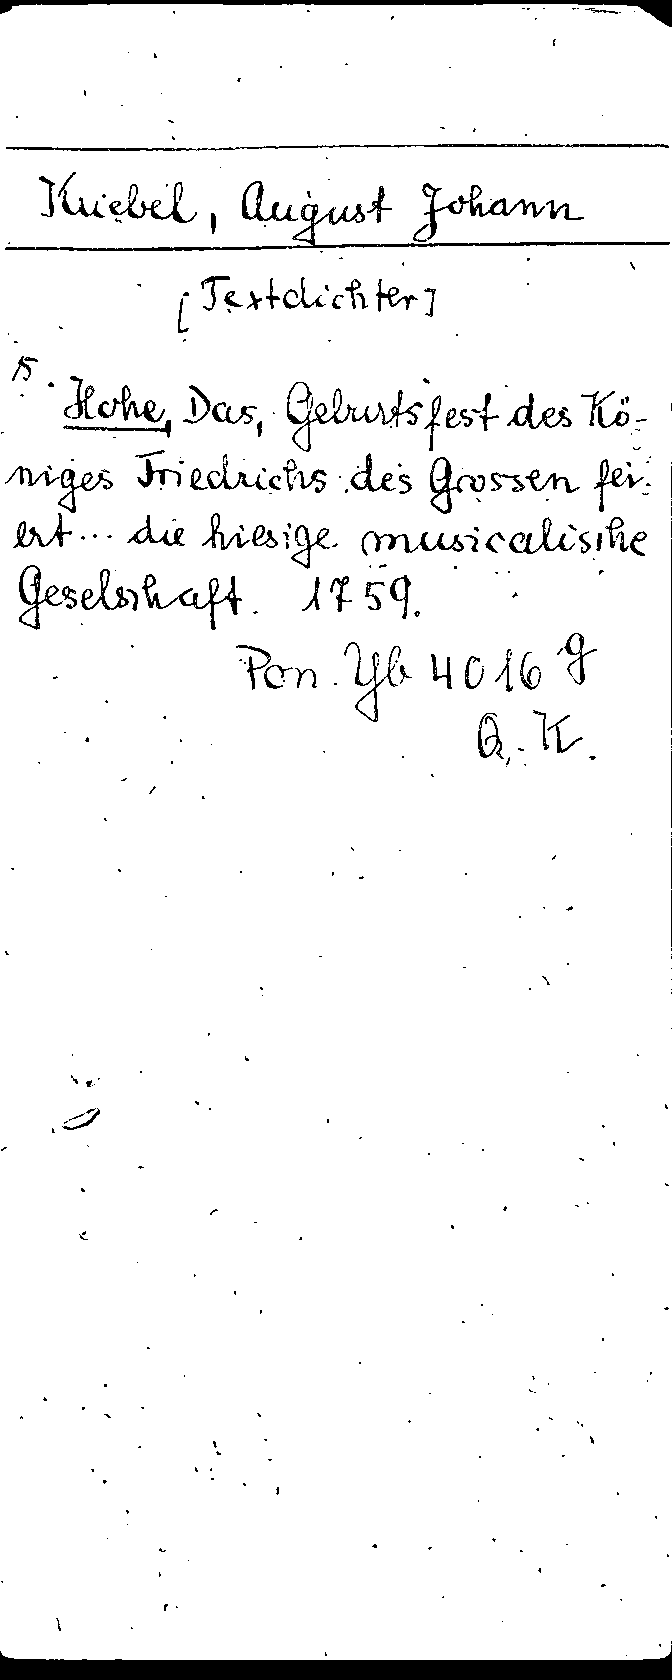 Kriebel, August Johann
[Textdichter]
15.
Hohe, Das, Geburtsfest des Kö-
niges Friedrichs des Grossen fei-
ert... die hiesige musicalische
Geselschaft. 1759.
Pon. Yb 4016 g
Q. K.